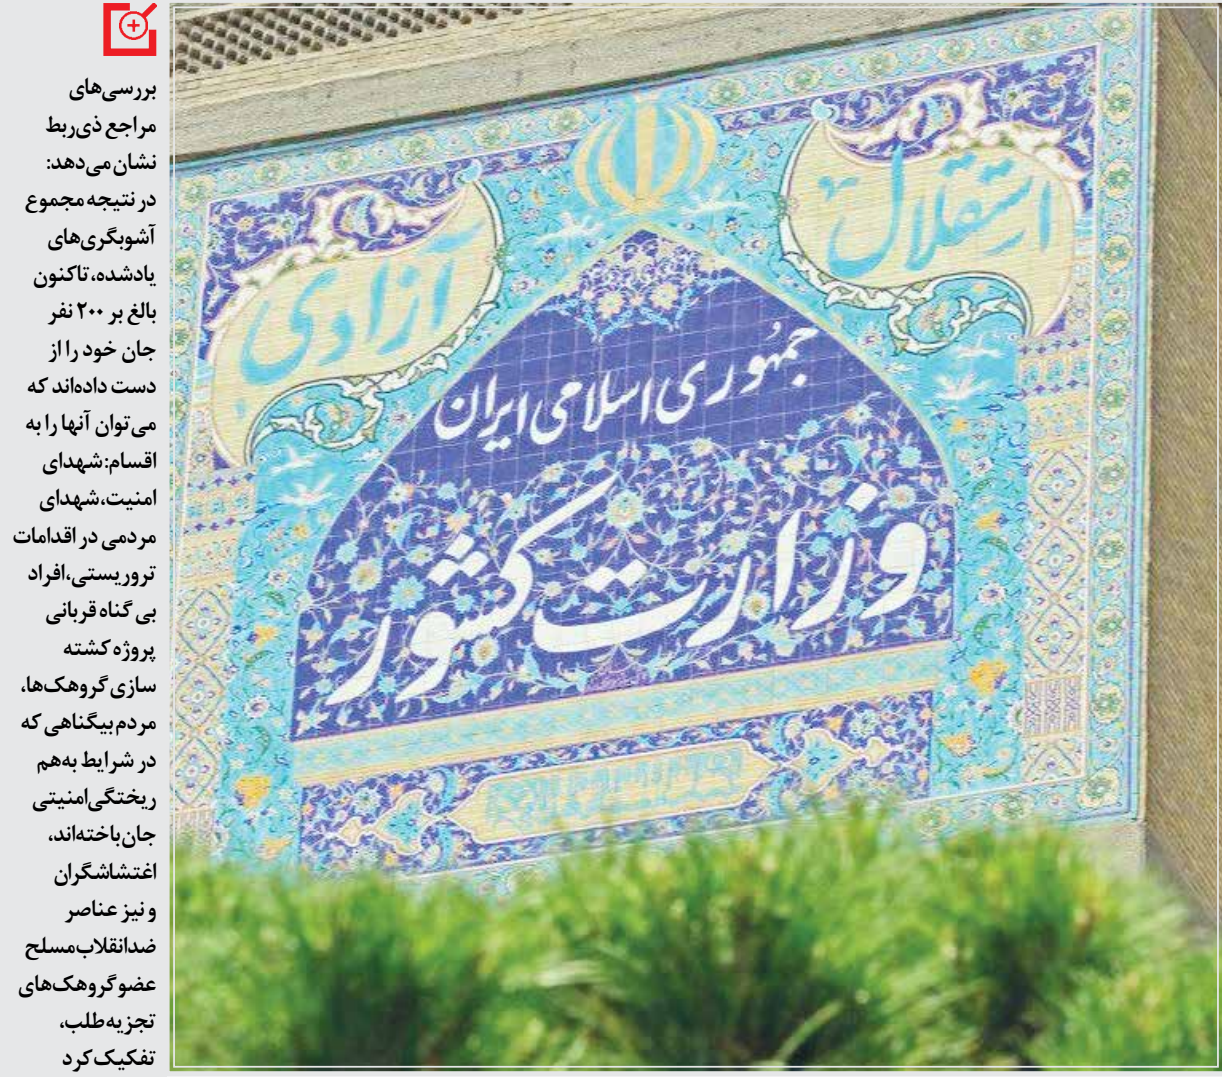 بررسی‌های
مراجع ذی‌ربط
نشان می‌دهد:
در نتیجه مجموع
آشوبگری‌های
یادشده، تاکنون
بالغ بر ۲۰۰ نفر
جان خود را از
دست داده‌اند که
می‌توان آنها را به
اقسام: شهدای
امنیت، شهدای
مردمی در اقدامات
تروریستی، افراد
بی گناه قربانی
پروژه کشته
سازی گروهک‌ها،
مردم بیگناهی که
در شرایط به‌هم
ریختگی امنیتی
جان‌باخته‌اند،
اغتشاشگران
و نیز عناصر
ضدانقلاب مسلح
عضو گروهک‌های
تجزیه‌طلب،
تفکیک کرد
استقلال
آزادی
جمهوری اسلامی ایران
وزارت کشور